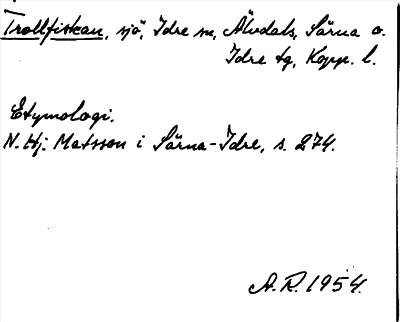 Trollfiskan, sjö, Idre sn, Älvdals, Särna o.
Idre tg, Kopp. l.
Etymologi.
N. Hj. Matsson i Särna-Idre, s. 274.
A.R. 1954.